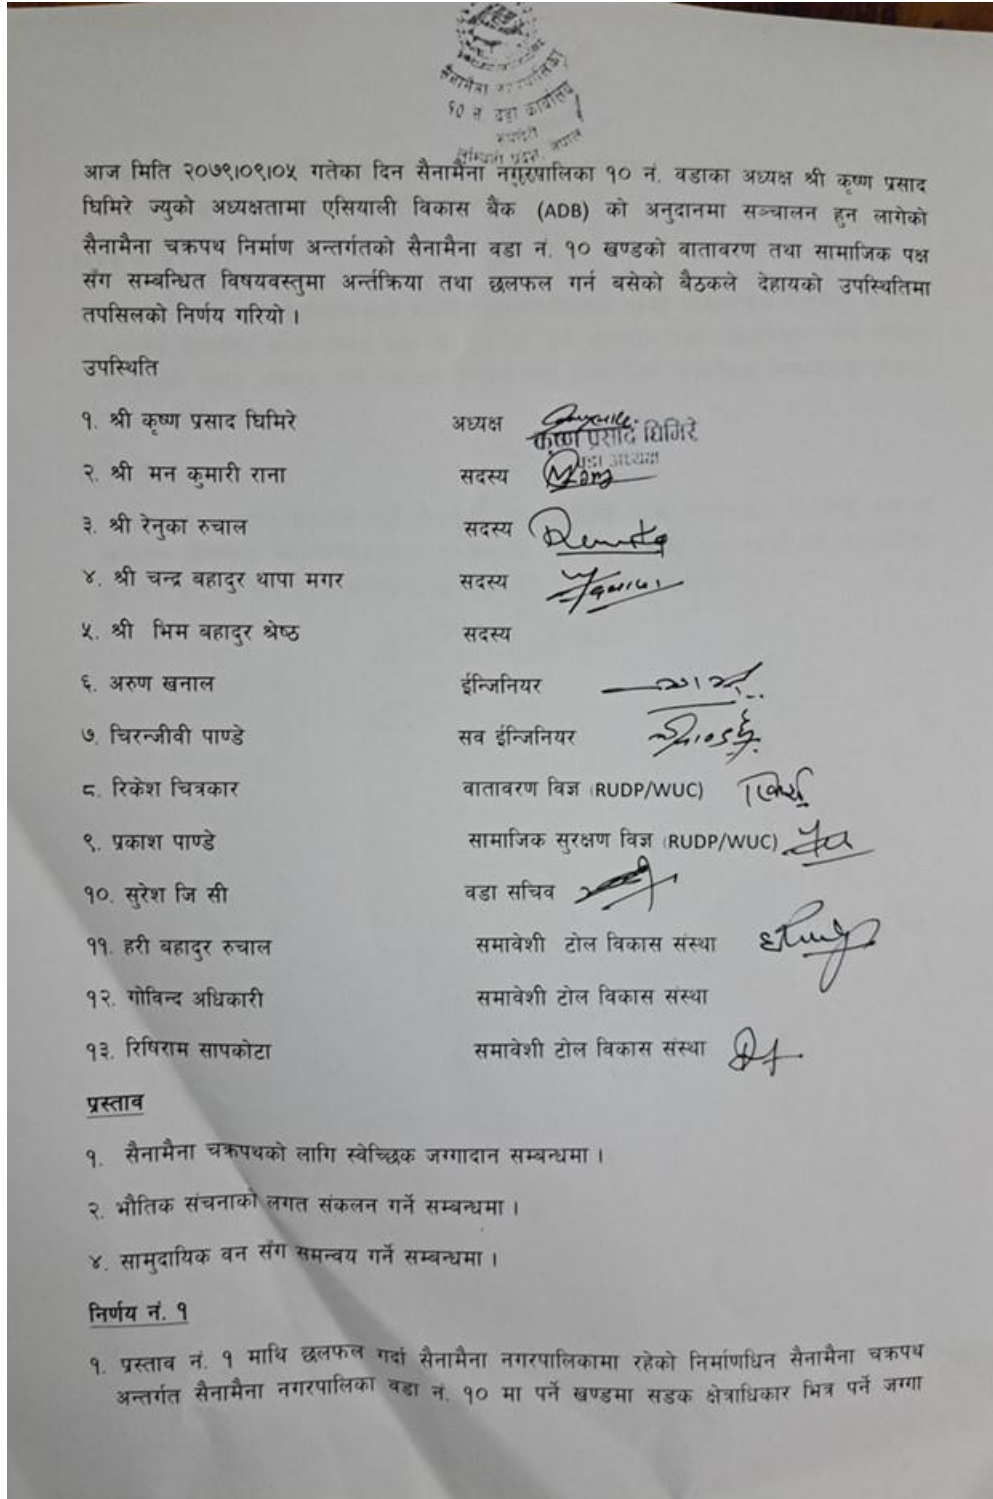 सैनामैना नगरपालिका
१० नं. वडा कार्यालय
रुपन्देही
लुम्बिनी प्रदेश, नेपाल
आज मिति २०७९।०९।०५ गतेका दिन सैनामैना नगरपालिका १० नं. वडाका अध्यक्ष श्री कृष्ण प्रसाद
घिमिरे ज्युको अध्यक्षतामा एसियाली विकास बैंक (ADB) को अनुदानमा सञ्चालन हुन लागेको
सैनामैना चक्रपथ निर्माण अन्तर्गतको सैनामैना वडा नं. १० खण्डको वातावरण तथा सामाजिक पक्ष
सँग सम्बन्धित विषयवस्तुमा अर्न्तक्रिया तथा छलफल गर्न बसेको बैठकले देहायको उपस्थितिमा
तपसिलको निर्णय गरियो ।
उपस्थिति
१. श्री कृष्ण प्रसाद घिमिरे अध्यक्ष
कृष्ण प्रसाद घिमिरे
वडा अध्यक्ष
२. श्री मन कुमारी राना सदस्य
३. श्री रेनुका रुचाल सदस्य Renuka
४. श्री चन्द्र बहादुर थापा मगर सदस्य
५. श्री भिम बहादुर श्रेष्ठ सदस्य
६. अरुण खनाल ईन्जिनियर
७. चिरन्जीवी पाण्डे सव ईन्जिनियर
८. रिकेश चित्रकार वातावरण विज्ञ (RUDP/WUC)
९. प्रकाश पाण्डे सामाजिक सुरक्षण विज्ञ (RUDP/WUC)
१०. सुरेश जि सी वडा सचिव
११. हरी बहादुर रुचाल समावेशी टोल विकास संस्था
१२. गोविन्द अधिकारी समावेशी टोल विकास संस्था
१३. रिषिराम सापकोटा समावेशी टोल विकास संस्था
प्रस्ताव
१. सैनामैना चक्रपथको लागि स्वेच्छिक जग्गादान सम्बन्धमा ।
२. भौतिक संचनाको लगत संकलन गर्ने सम्बन्धमा ।
४. सामुदायिक वन सँग समन्वय गर्ने सम्बन्धमा ।
निर्णय नं. १
१. प्रस्ताव नं. १ माथि छलफल गर्दा सैनामैना नगरपालिकामा रहेको निर्माणधिन सैनामैना चक्रपथ
अन्तर्गत सैनामैना नगरपालिका वडा नं. १० मा पर्ने खण्डमा सडक क्षेत्राधिकार भित्र पर्ने जग्गा